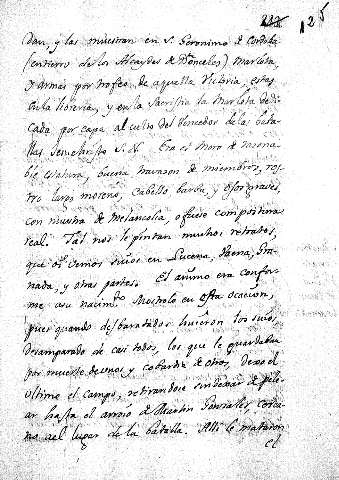 237 125
dan, y las muestran en S. Geronimo de Cordoba
(entierro de los Alcaydes de Donceles) Marlota,
y armas por trofeo de aquella Victoria, estas
en la libreria, y en la Sacristia la Marlota dedi
cada por capa al culto del Vencedor de las bata
llas Jesuchristo S. N. Era el Moro de razona
ble estatura, buena travason de miembros, ros
tro largo moreno, cabello barba y ojos graves,
con muestra de Melancolia, o fuese compostura
real. Tal nos le pintan muchos retratos,
que oi vemos suios en Lucena, Baena, Gra
nada, y otras partes. El animo era confor
me a su nacimto. Mostrolo en esta ocacion,
pues quando desbaratados huieron los suios,
desamparado de casi todos, los que le guardaban
por muerte de unos y cobardia de otros, dexo el
ultimo el campo, retirandose sin dexar de pele
ar hasta el arroio de Martin Gonzalez, cerca
no al lugar de la batalla. Alli le mataron
el